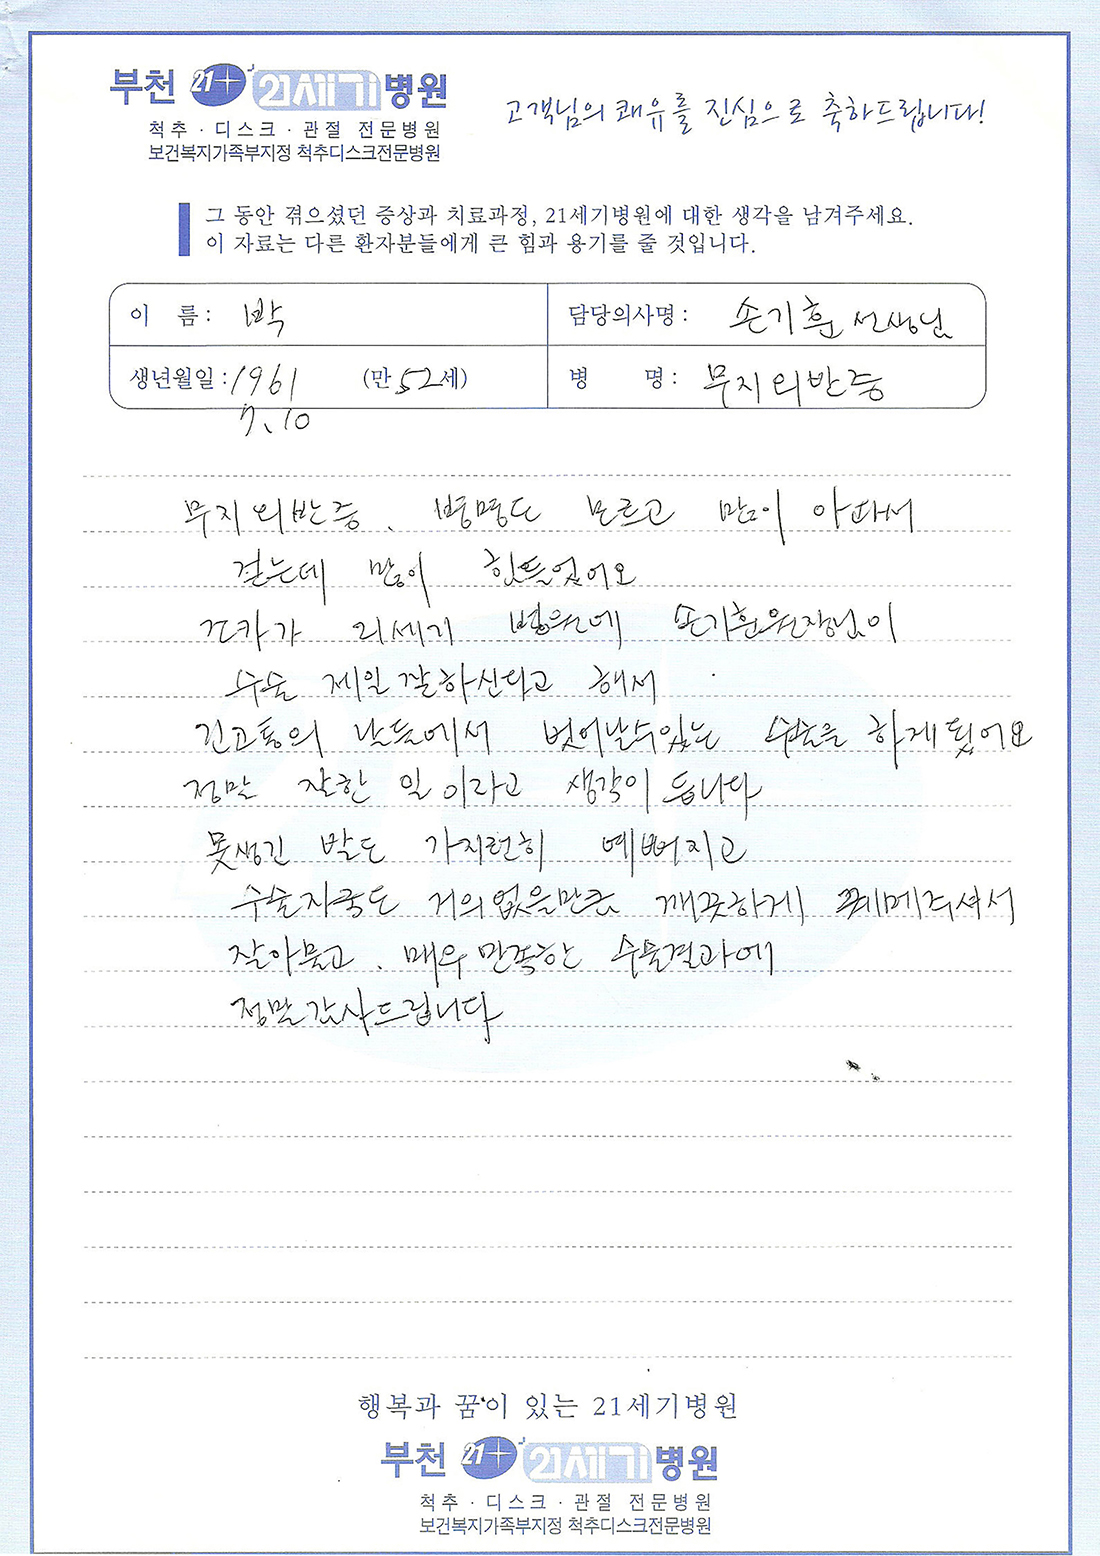 부천 21+ 21세기병원
척추 · 디스크 · 관절 전문병원
보건복지가족부지정 척추디스크전문병원
고객님의 쾌유를 진심으로 축하드립니다!
그 동안 겪으셨던 증상과 치료과정, 21세기병원에 대한 생각을 남겨주세요.
이 자료는 다른 환자분들에게 큰 힘과 용기를 줄 것입니다.
이 름 : 박
담당의사명 : 손기훈 선생님
생년월일 : 1961 (만 52세)
7. 10
병 명 : 무지외반증
무지외반증. 병명도 모르고 많이 아파서
걷는데 많이 힘들었어요
조카가 21세기 병원에 손기훈원장님이
수술 제일 잘하신다고 해서
긴고통의 날들에서 벗어날수있는 수술을 하게 됬어요
정말 잘한 일이라고 생각이 듭니다
못생긴 발도 가지런히 예뻐지고
수술자국도 거의없을만큼 깨끗하게 꿰메주셔서
잘아물고. 매우 만족한 수술결과에
정말감사드립니다
행복과 꿈이 있는 21세기병원
부천 21+ 21세기병원
척추 · 디스크 · 관절 전문병원
보건복지가족부지정 척추디스크전문병원